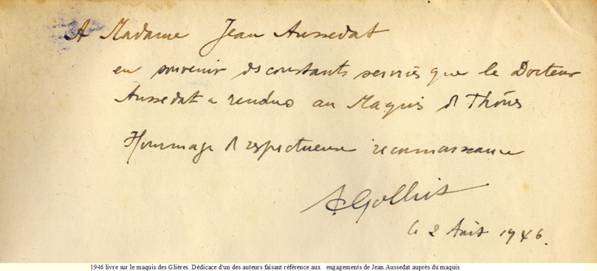 A Madame Jean Aussedat
en souvenir des constants services que le Docteur
Aussedat a rendus au Maquis de Thônes
Hommage de respectueuse reconnaissance
le 2 Août 1946.
1946 livre sur le maquis des Glières. Dédicace d'un des auteurs faisant référence aux engagements de Jean Aussedat auprès du maquis